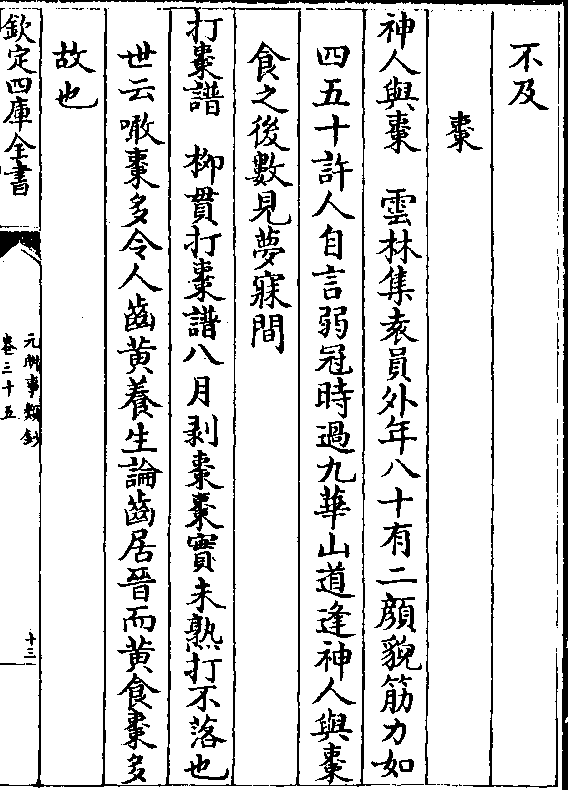 不及
棗
神人與棗　雲林集袁員外年八十有二顔貌筋力如
四五十許人自言弱冠時過九華山道逢神人與棗
食之後數見夢寐間
打棗譜　栁貫打棗譜八月剥棗棗實未熟打不落也
世云噉棗多令人齒黄養生論齒居晉而黄食棗多
故也
欽定四庫全書
元明事類鈔
卷三十五
十三